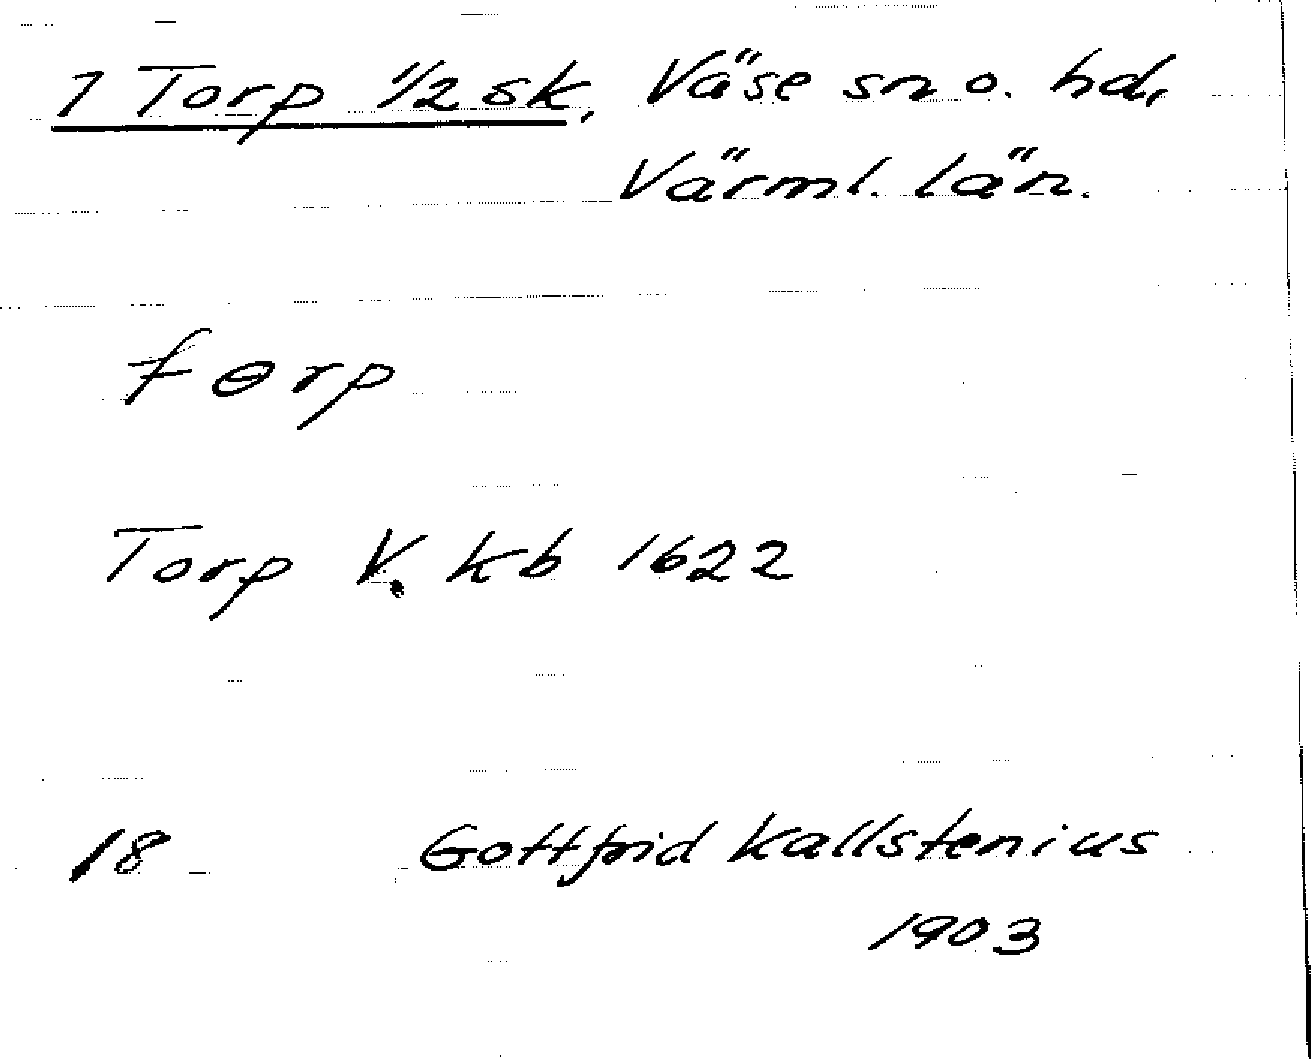 1 Torp 1/2 sk, Väse sn o. hd,
Värml. län.
tɵrp
Torp V. kb 1622
18 Gottfrid Kallstenius
1903